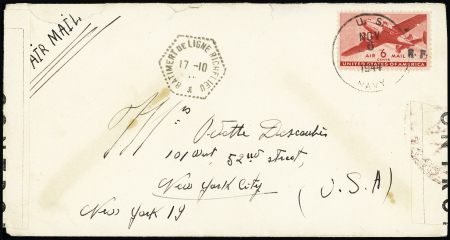 AIR MAIL
BATIMENT DE LIGNE RICHELIEU
17-10
U. S.
NOV
6
1944
NAVY
AIR 6 MAIL
CENTS
UNITED STATES OF AMERICA
R. F.
Odette Descoubès
101 West, 52nd street,
New York City
(U.S.A)
New York 19